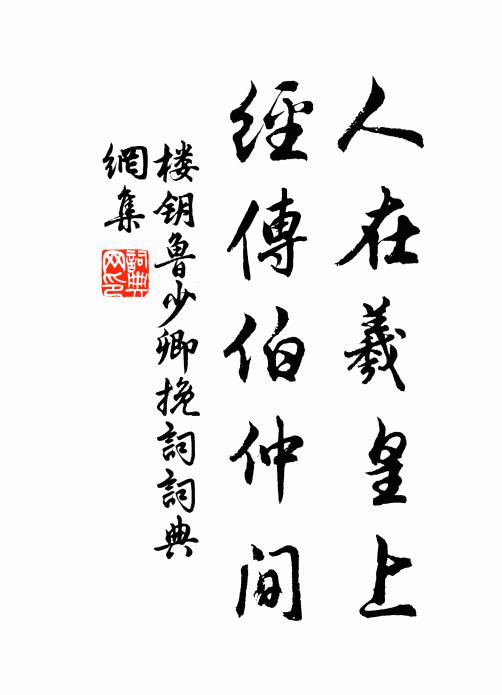 人在羲皇上
經傳伯仲間
楼钥魯少卿挽詞詞典
網集
詞典
网印